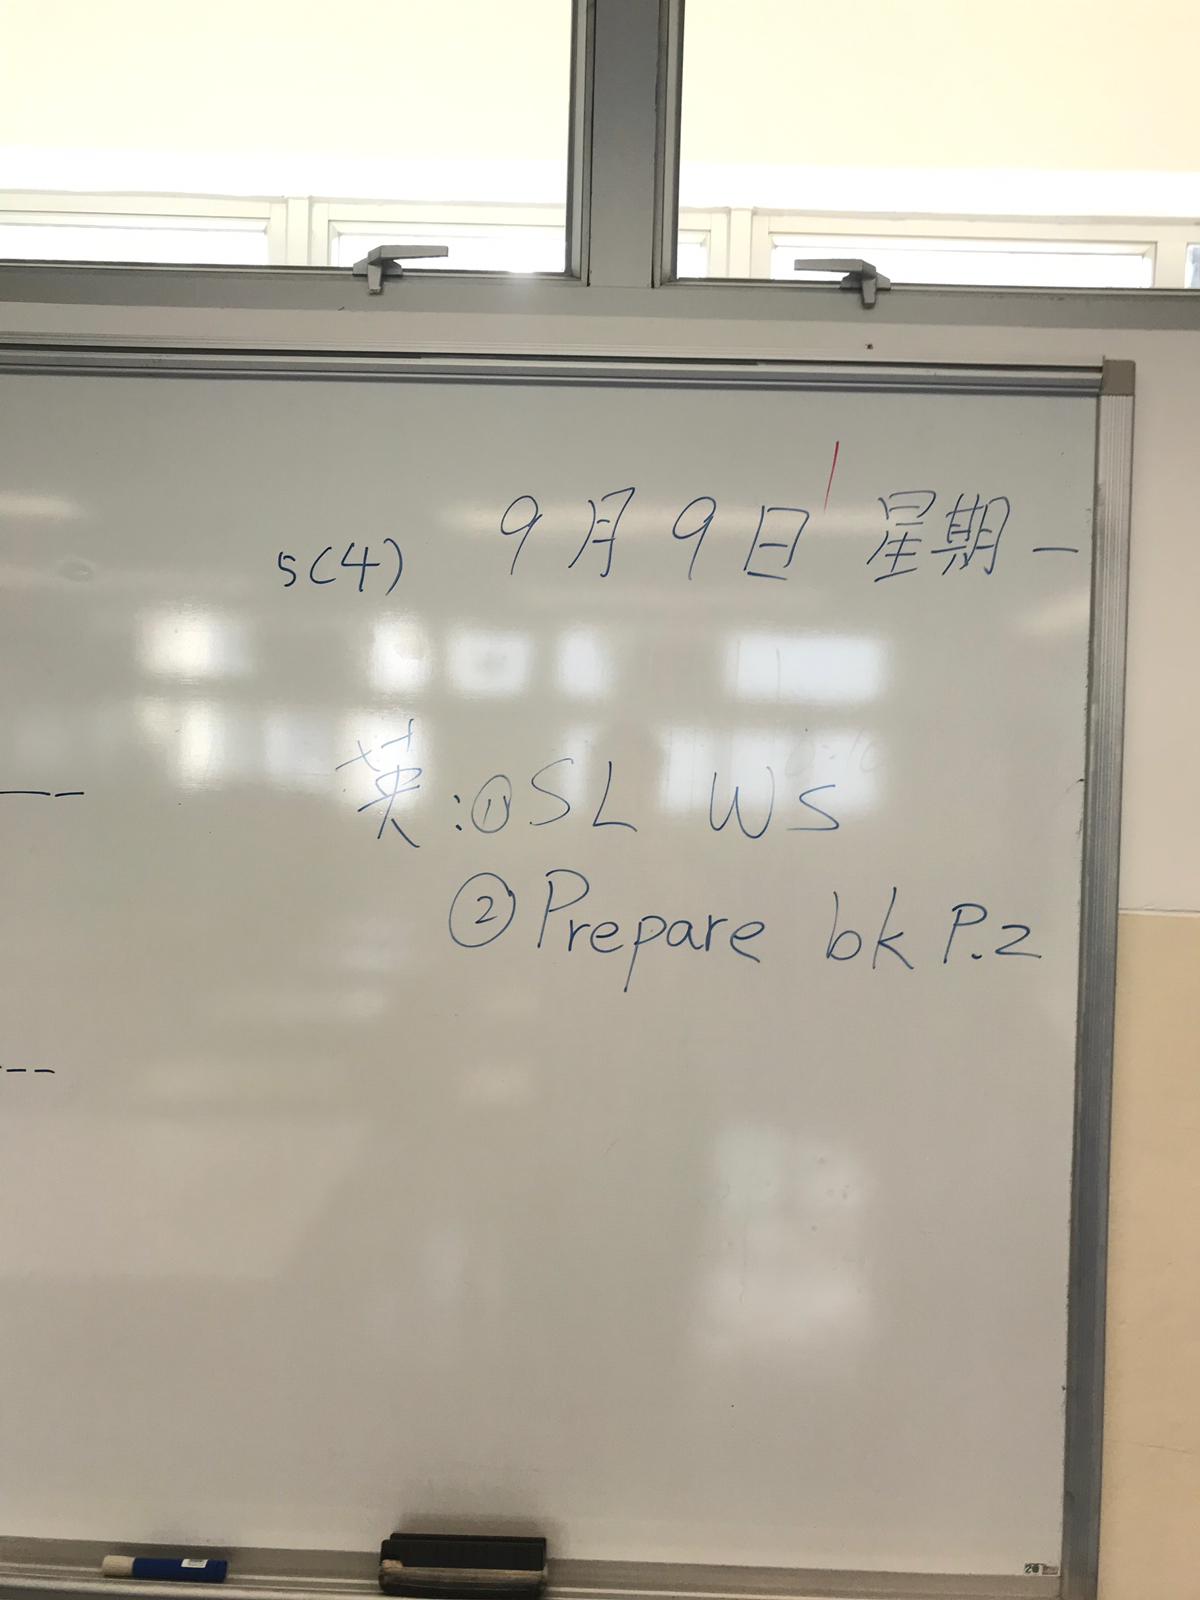 5(4) 9月9日 星期一
英:①SL WS
②Prepare bk P.2